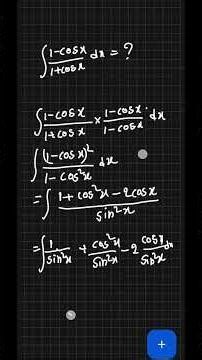 ∫ (1-cosx)/(1+cosx) dx = ?
∫ (1-cosx)/(1+cosx) × (1-cosx)/(1-cosx) dx
∫ (1-cosx)²/(1-cos²x) dx
= ∫ (1+cos²x-2cosx)/(sin²x)
= ∫ 1/(sin²x) + (cos²x)/(sin²x) - 2 (cosx)/(sin²x) dx